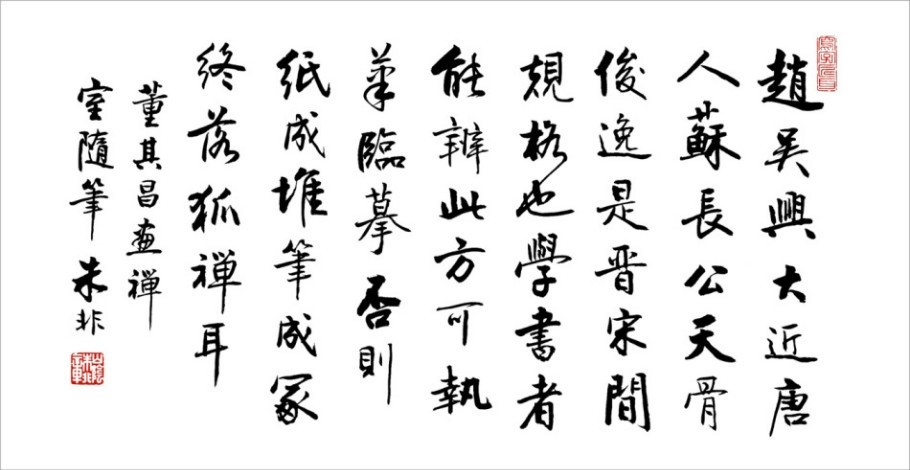 趙吳興大近唐
人蘇長公天骨
俊逸是晉宋間
規格也學書者
能辦此方可執
筆臨摹否則
紙成堆筆成冢
終落狐禅耳
董其昌畫禅
室隨筆 朱非